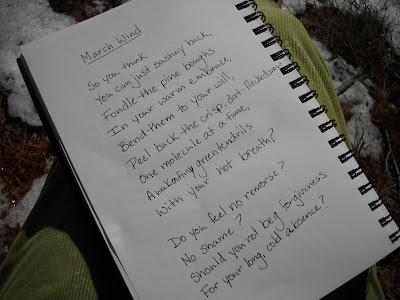 March Wind
So you think
You can just sashay back,
Fondle the pine boughs
In your warm embrace,
Bend them to your will,
Peel back the crisp, dirt-flecked
One molecule at a time,
Awakening green tendrils
With your hot breath?
Do you feel no remorse?
No shame?
Should you not beg forgiveness
For your long, cold absence?